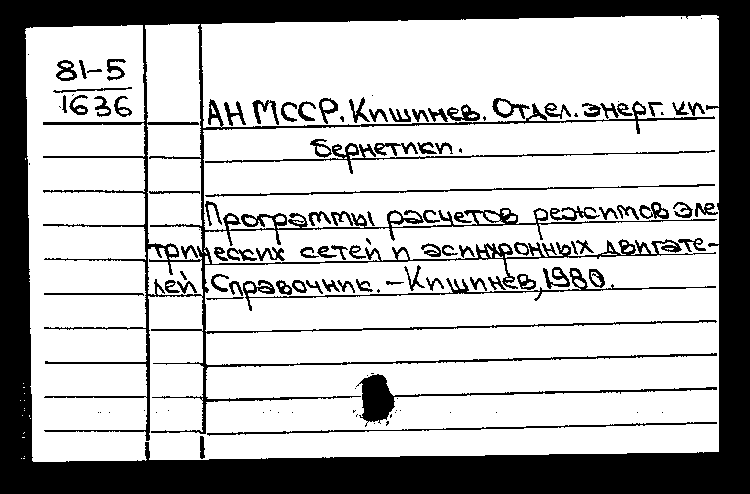 81-5
1636
АН МССР. Кишинев. Отдел. энерг. ки-
бернетики.
Программы расчетов режимов эле
трических сетей и асинхронных двигате-
лей: Справочник. - Кишинев, 1980.